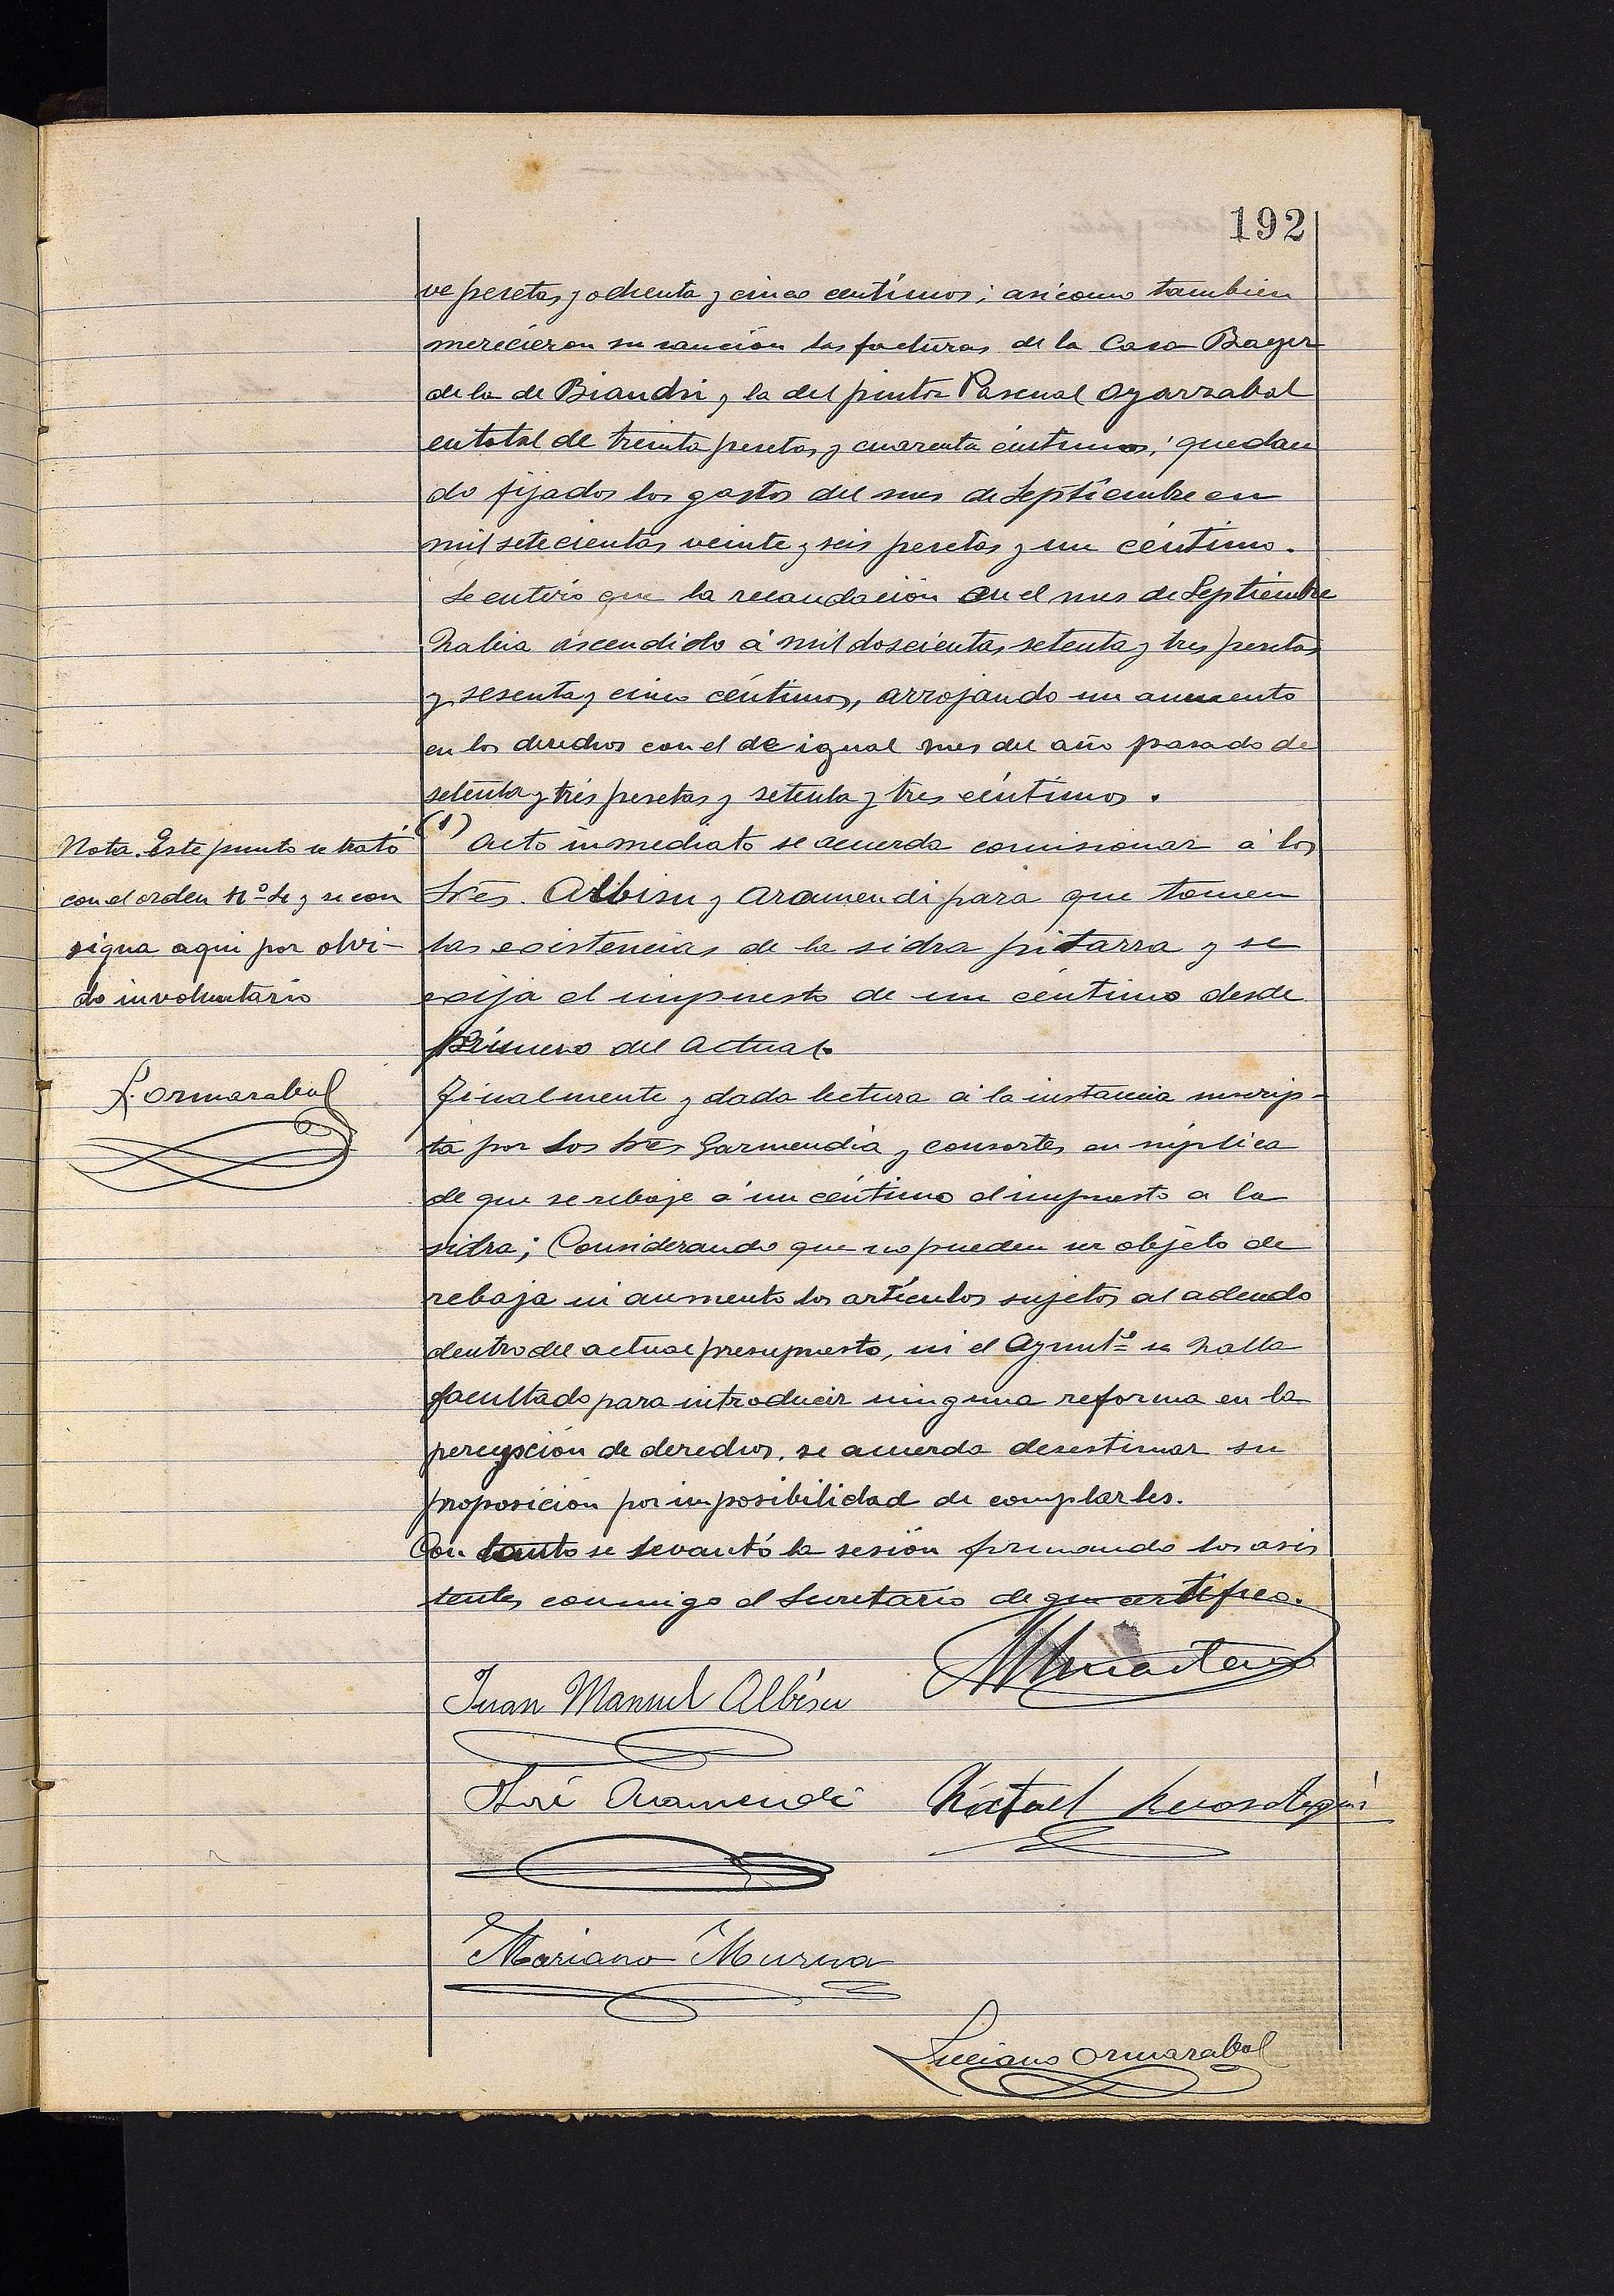 192
ve pesetas y ochenta y cinco centimos; asi como tambien
merecieron su sanción las facturas de la Casa Bayer
de la de Biandri y la del pintor Pascual Oyarzabal
en total de treinta pesetas y cuarenta céntimos; quedan
do fijados los gastos del mes de Septiembre en
mil setecientas veinte y seis pesetas y un céntimo.
Se enteró que la recaudación en el mes de Septiembre
habia ascendido á mil doscientas setenta y tres pesetas
y sesenta y cinco céntimos, arrojando un aumento
en los derechos con el de igual mes del año pasado de
setenta y tres pesetas y setenta y tres céntimos.
(1) Acto inmediato se acuerda comisionar á los
Sres. Albisu y Aramendi para que tomen
las existencias de la sidra pitarra y se
exija el impuesto de un céntimo desde
primero del actual.
Nota. Este punto se trató
con el orden nº y se con
signa aqui por olvi-
do involuntario
L. Ormazabal
Finalmente y dada lectura á la instancia suscrip-
ta por los Sres Garmendia y consortes en súplica
de que se rebaje á un céntimo el impuesto a la
sidra; Considerando que no pueden ser objeto de
rebaja ni aumento los artículos sujetos al adeudo
dentro del actual presupuesto, ni el Ayuntº se halla
facultado para introducir ninguna reforma en la
percepción de derechos, se acuerda desestimar su
proposición por imposibilidad de complarles.
Con tanto se levantó la sesión firmando los asis
tentes conmigo el Secretario de que certifico.
Juan Manuel Albisu
José Aramendi
Rafael
Mariano Murua
Luciano Ormazabal